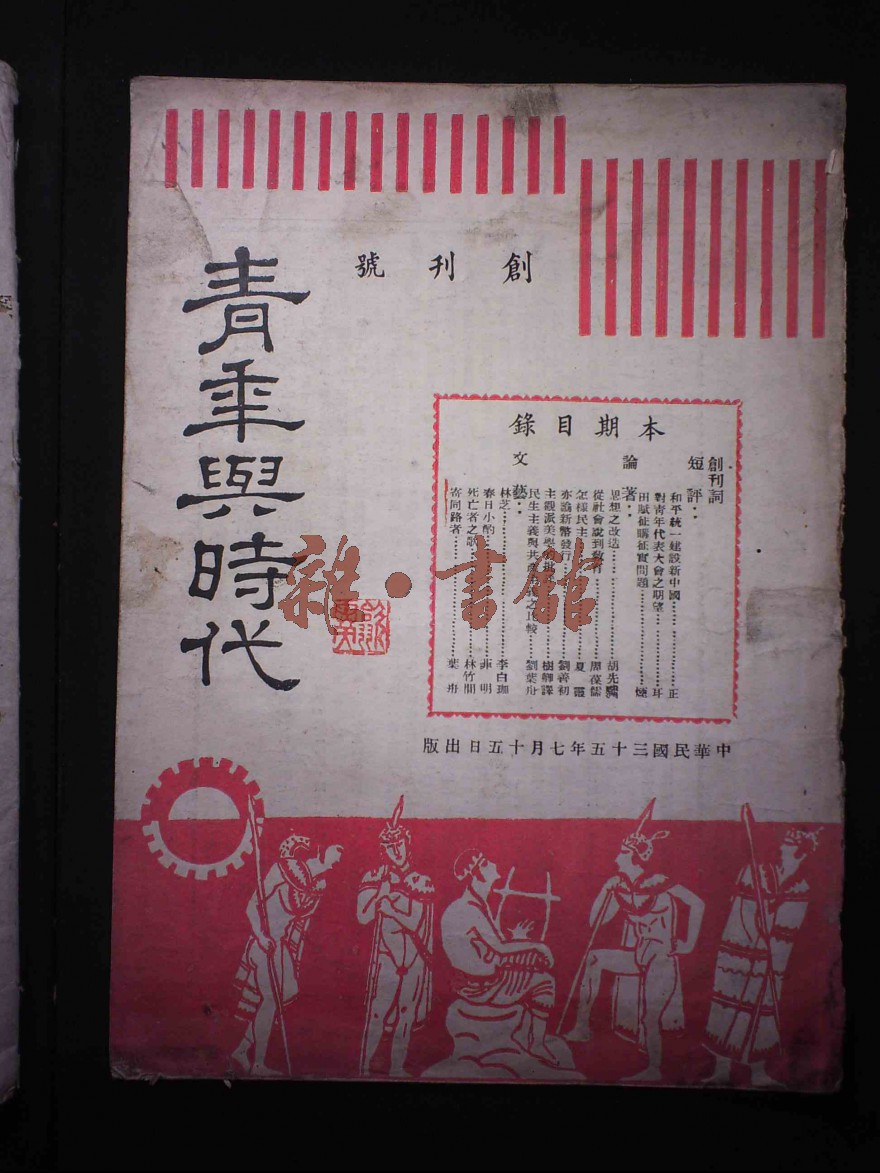 創刊號
青年與時代
本期目錄
創刊詞
短評：
和平統一建設新中國……正
對青年代表大會之期望……耳
田賦征購征實問題……煙
論著：
思想之改造……胡先驌
從社會說到教育……周葆儒
怎樣民主……夏靈
亦論新幣發行……劉善初
主觀派美學的批評……樹卿譯
民生主義與共產主義之比較……劉葉舟
文藝：
林芝……李白珈
春日小酌……菲明
死亡者之歌……林竹開
寄同路者……葉舟
中華民國三十五年七月十五日出版
雜·書館